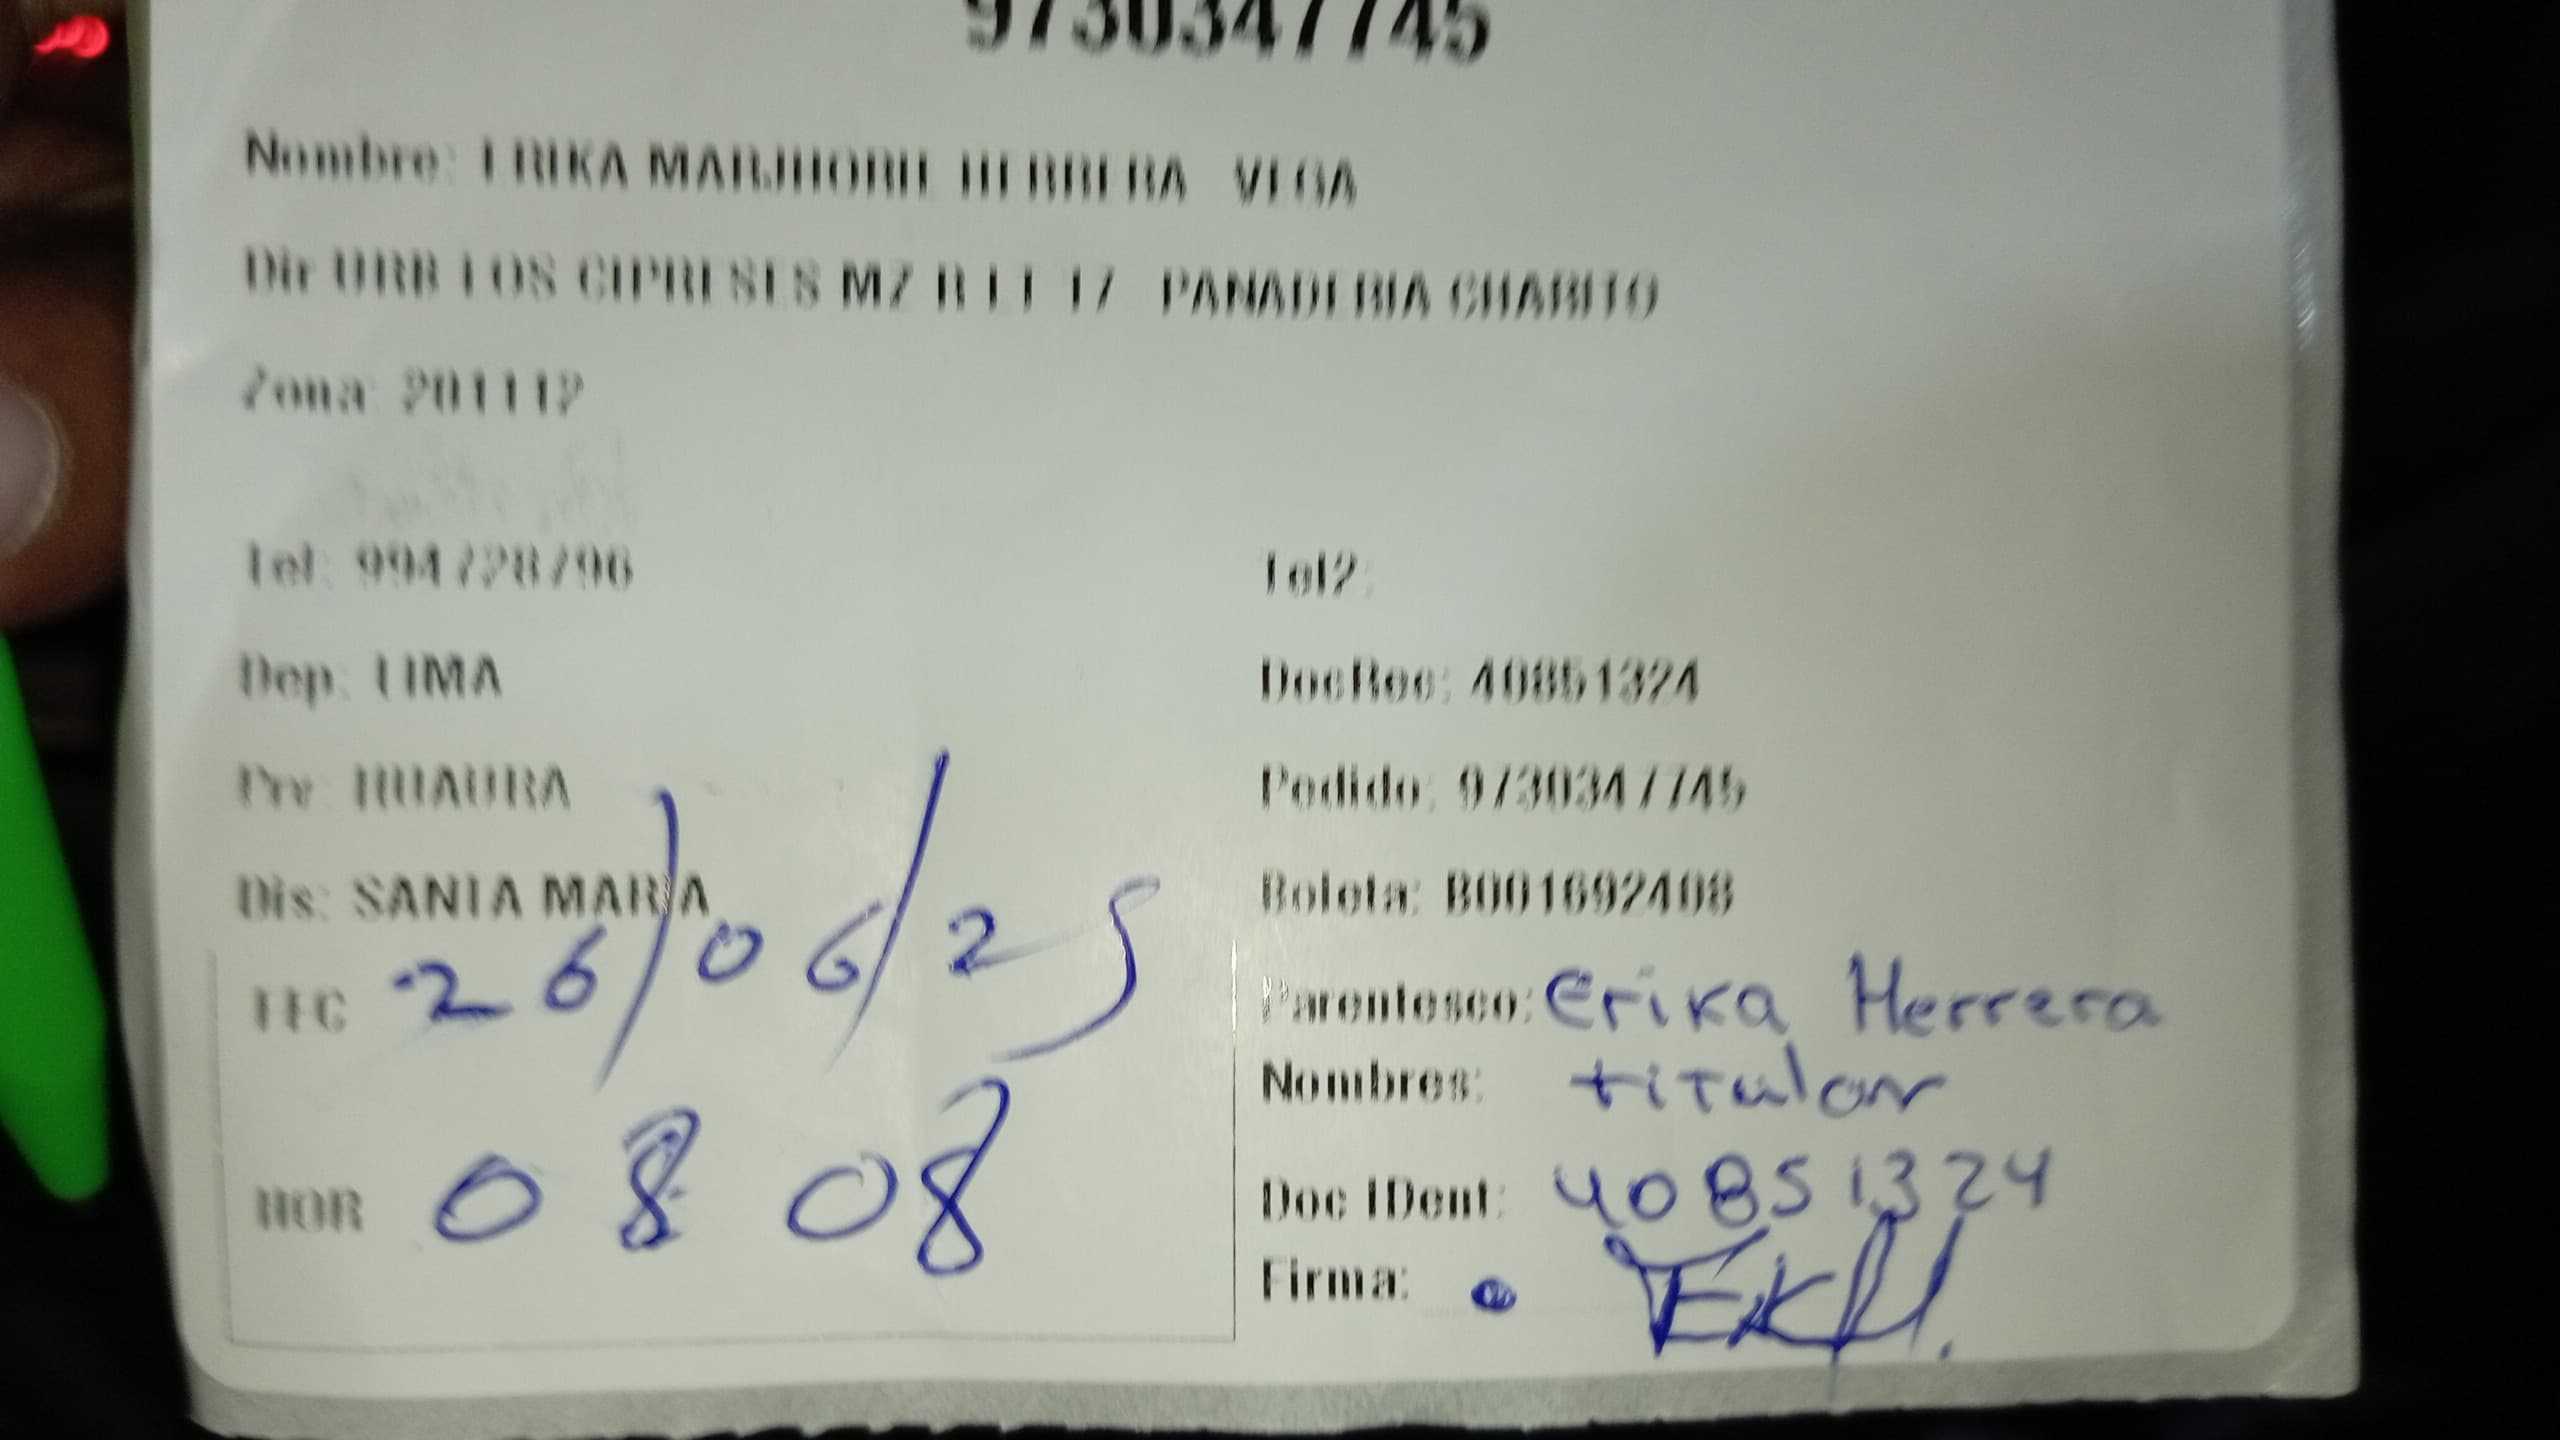 9730347745
Nombre: ERIKA MARJHORIE HERRERA VEGA
Dir URB LOS CIPRESES MZ B LT 17 PANADERIA CHARITO
Zona: 201112
Tel: 994728796
Tel2:
Dep: LIMA
DocRec: 40851324
Prv: HUAURA
Pedido: 9730347745
Dis: SANTA MARIA
Boleta: B001692408
FEC 26/06/25
Parentesco: Erika Herrera
Nombres: titular
HOR 08 08
Doc IDent: 40851324
Firma: